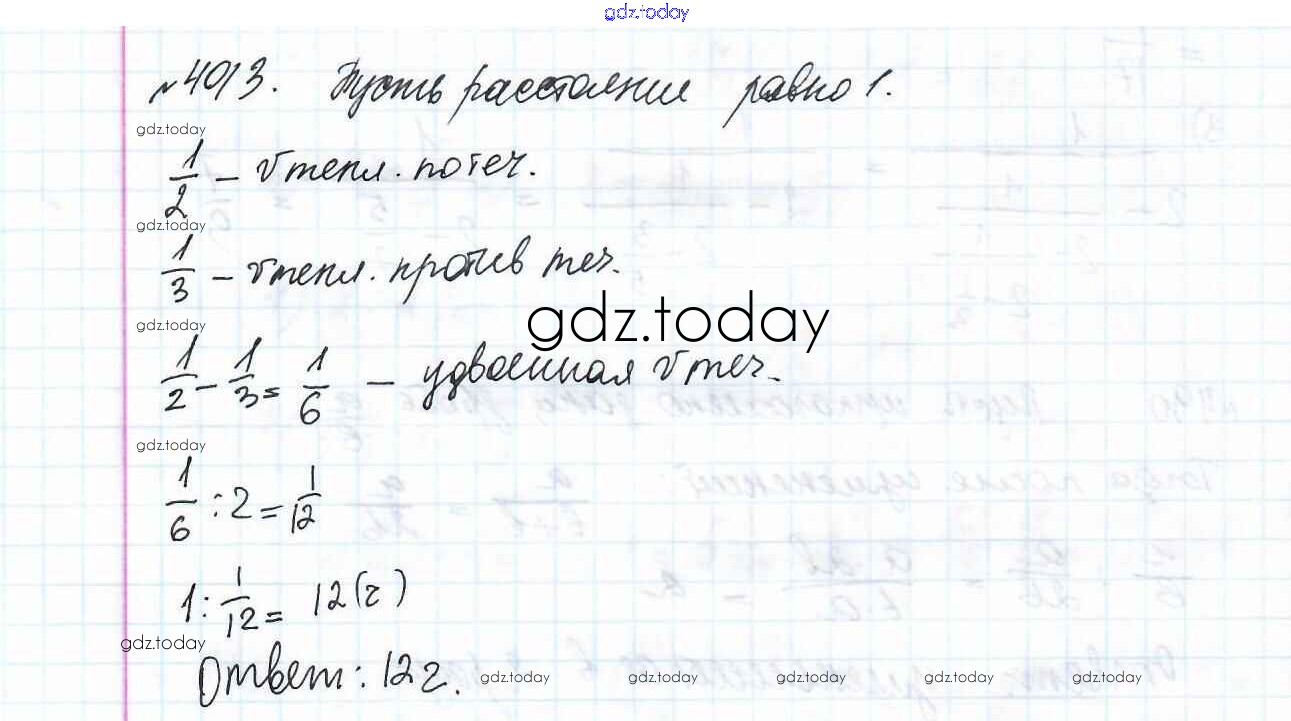 gdz.today
№ 4013. Пусть расстояние равно 1.
gdz.today
1/2 – v тепл. по теч.
gdz.today
1/3 – v тепл. против теч.
gdz.today
gdz.today
1/2 – 1/3 = 1/6 – удвоенная v теч.
gdz.today
1/6 : 2 = 1/12
1 : 1/12 = 12 (г)
gdz.today
Ответ: 12 г.
gdz.today gdz.today gdz.today gdz.today gdz.today